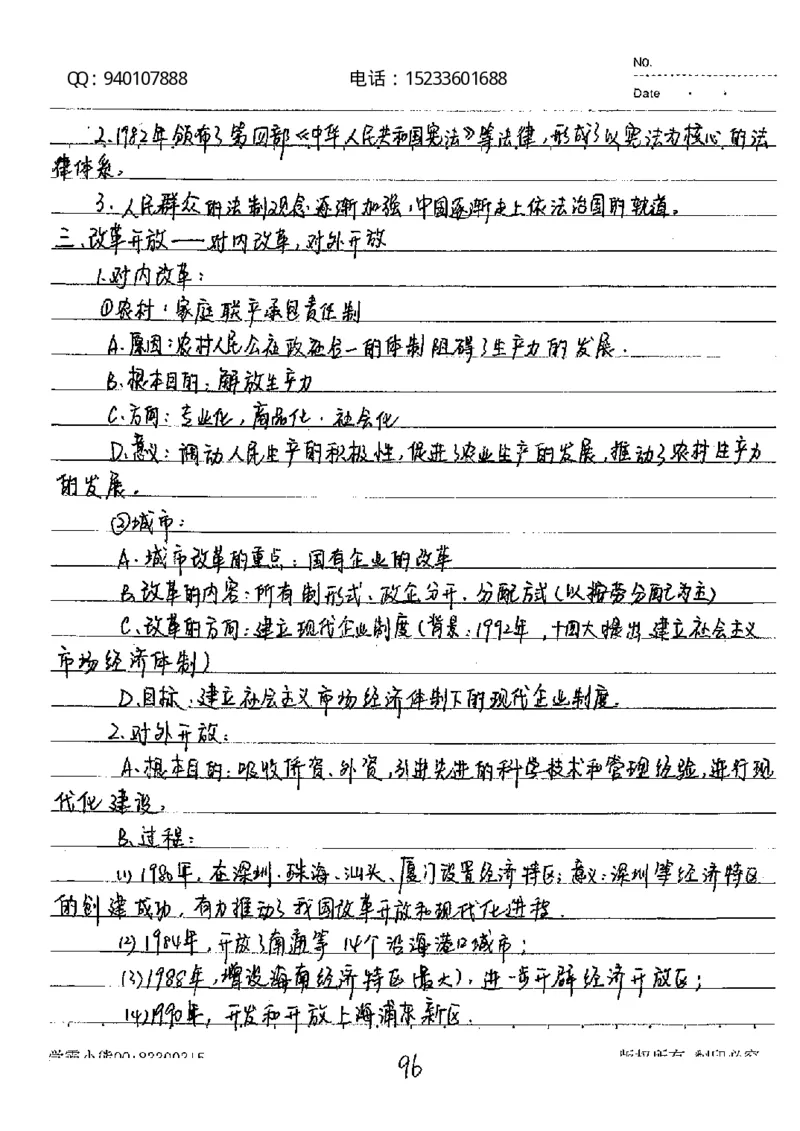 No.
QQ：940107888 电话：15233601688
Date
2.1982年颁布了第四部《中华人民共和国宪法》等法律，形成了以宪法为核心的法
律体系。
3.人民群众的法制观念逐渐加强，中国逐渐走上依法治国的轨道。
三、改革开放——对内改革，对外开放
1.对内改革：
①农村：家庭联产承包责任制
A.原因：农村人民公社政社合一的体制阻碍了生产力的发展.
B.根本目的：解放生产力
C.方向：专业化，商品化.社会化
D.意义：调动人民生产的积极性，促进了农业生产的发展，推动了农村生产力
的发展。
②城市：
A.城市改革的重点：国有企业的改革
B.改革的内容：所有制形式、政企分开、分配方式（以按劳分配为主）
C.改革的方向：建立现代企业制度（背景：1992年，十四大提出建立社会主义
市场经济体制）
D.目标：建立社会主义市场经济体制下的现代企业制度。
2.对外开放：
A.根本目的：吸收侨资、外资，引进先进的科学技术和管理经验，进行现
代化建设。
B.过程：
(1)1980年，在深圳.珠海、汕头、厦门设置经济特区；意义：深圳等经济特区
的创建成功，有力推动了我国改革开放和现代化进程.
(2)1984年，开放了南通等14个沿海港口城市；
(3)1988年，增设海南经济特区（最大），进一步开辟经济开放区；
(4)1990年，开发和开放上海浦东新区.
96